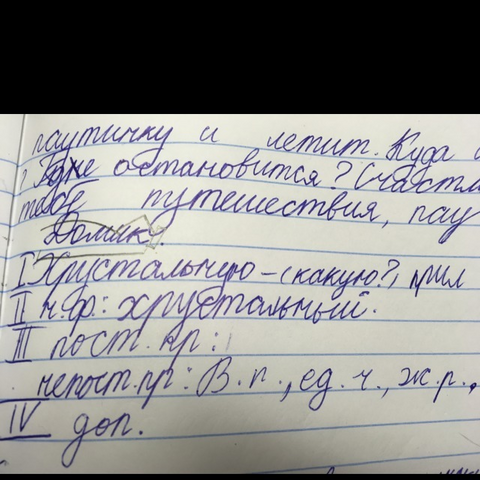 паутинку и летит. Куда
Где остановится? Счастл
тебе путешествия, пау
Домик
I Хрустальную – (какую?) прил
II н.ф.: хрустальный.
III пост. пр:
непост. пр: В.п., ед. ч., ж.р.,
IV доп.